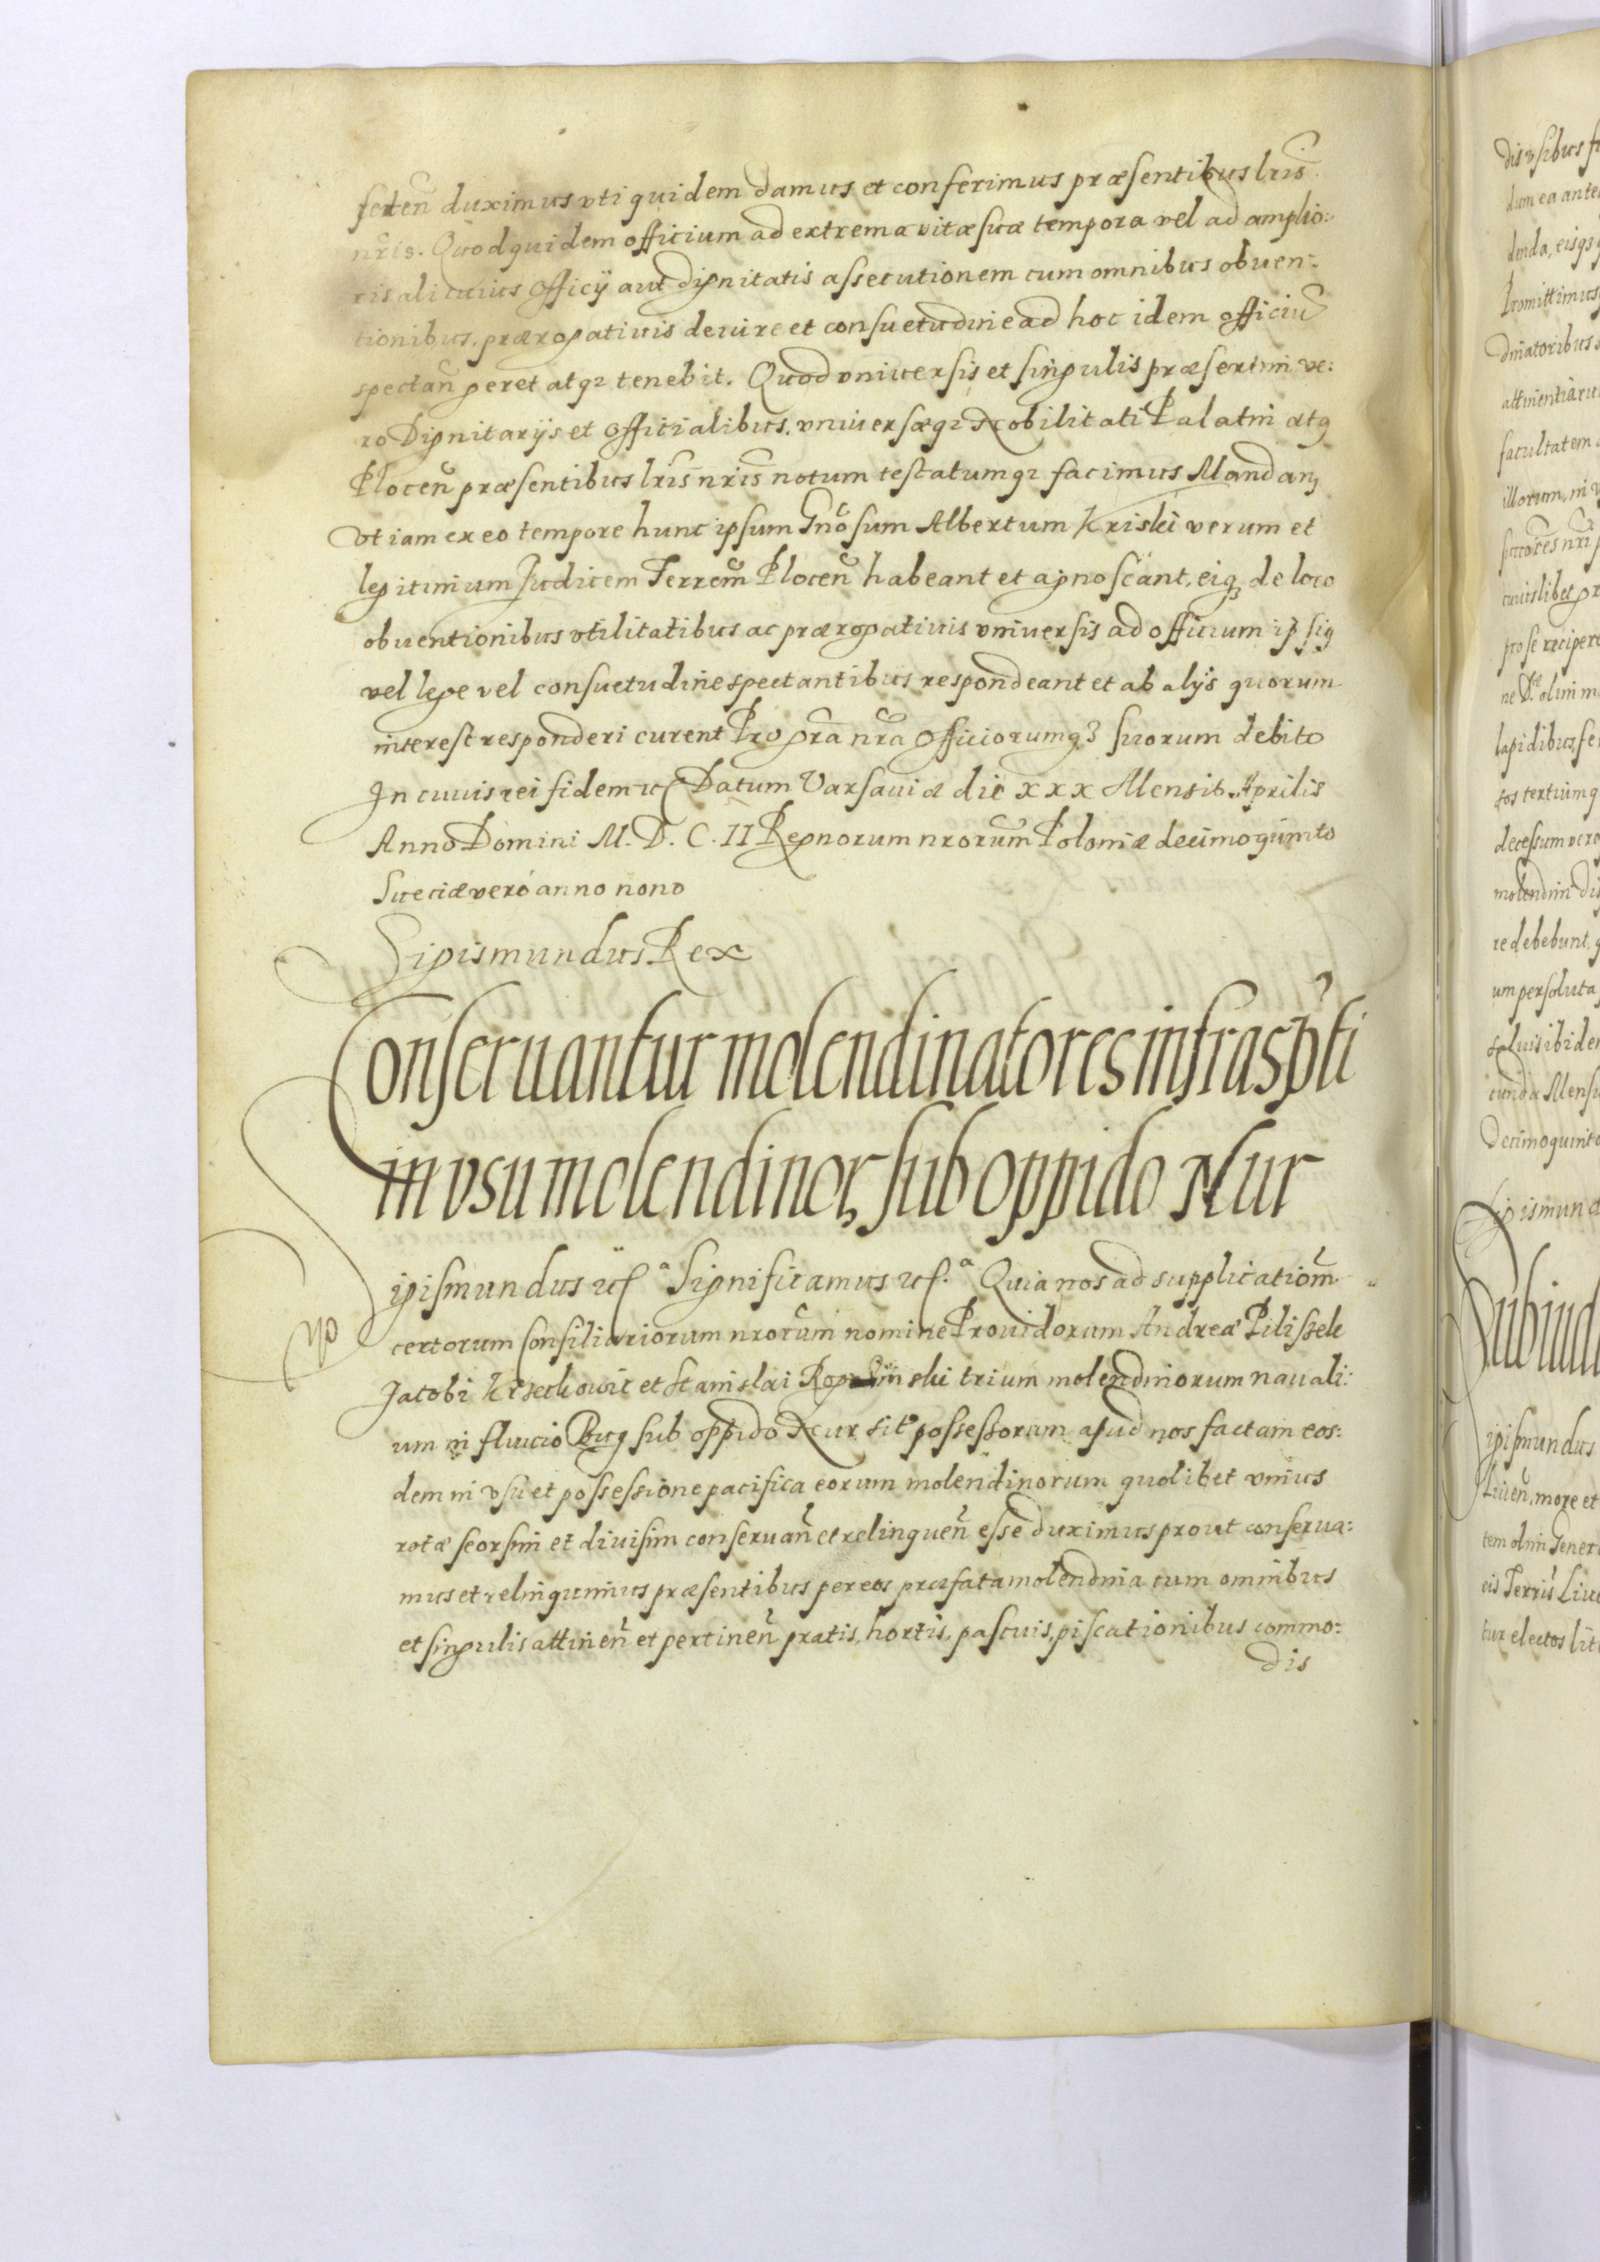 feren̄ duximus vti quidem damus et conferimus præsentibus lris̄
nr̄is. Quod quidem officium ad extrema vitæ suæ tempora vel ad amplio:
ris alicuius officÿ aut dignitatis assecutionem cum omnibus obuen:
tionibus, prærogatiuis de iure et consuetudine ad hoc idem officiū
spectan̄ geret atq₃ tenebit. Quod vniuersis et singulis præsertim ve:
ro Dignitarijs et officialibus, vniuersæq₃ Nobilitati Palatin atq
Plocen̄ præsentibus lris̄ nris̄ notum testatumq₃ facimus Mandan₃
vt iam ex eo tempore hunc ipsum Gn̄osum Albertum Kriski verum et
legitimum Judicem Terren̄ Plocen̄ habeant et agnoscant, eiq₃ de loco
obuentionibus vtilitatibus ac prærogatiuis vniuersis ad officium ip̄siq
vel lege vel consuetudine spectantibus respondeant et ab alijs quorum
interest responderi curent Pro gr̄a nr̄a officiorumq₃ suorum debito
In cuius rei fidem etc Datum Varsauiæ die xxx Mensis Aprilis
Anno Domini M. D. C. II Regnorum nrorūm Poloniæ decimoquinto
Sueciæ vero anno nono
Sigismundus Rex
Conseruantur molendinatores infrasp̄ti
in vsu molendinoꝝ sub oppido Nur
igismundus etc.ᵃ Significamus etc.ᵃ Quia nos ad supplicationem̄
certorum Consiliariorum nrorūm nomine Prouidorum Andreæ Pilissek
Jacobi et Stanislai trium molendinorum nauali:
um in fluuio Bug sub oppido Nur sit possessorum apud nos factam eos:
dem in vsu et possessione pacifica eorum molendinorum quolibet vnius
rotæ seorsim et diuisim conseruan̄ et relinquen̄ esse duximus prout conserua:
mus et relinquimus præsentibus per eos præfata molendina cum omnibus
et singulis attinen̄ et pertinen̄ pratis, hortis, pascuis, piscationibus commo:
dis